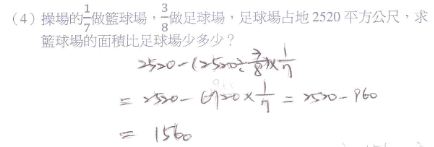 (4) 操場的1/7做籃球場，3/8做足球場，足球場占地 2520 平方公尺，求
籃球場的面積比足球場少多少？
2520-(2520÷3/8)×1/7
=2520-6720×1/7=2520-960
=1560